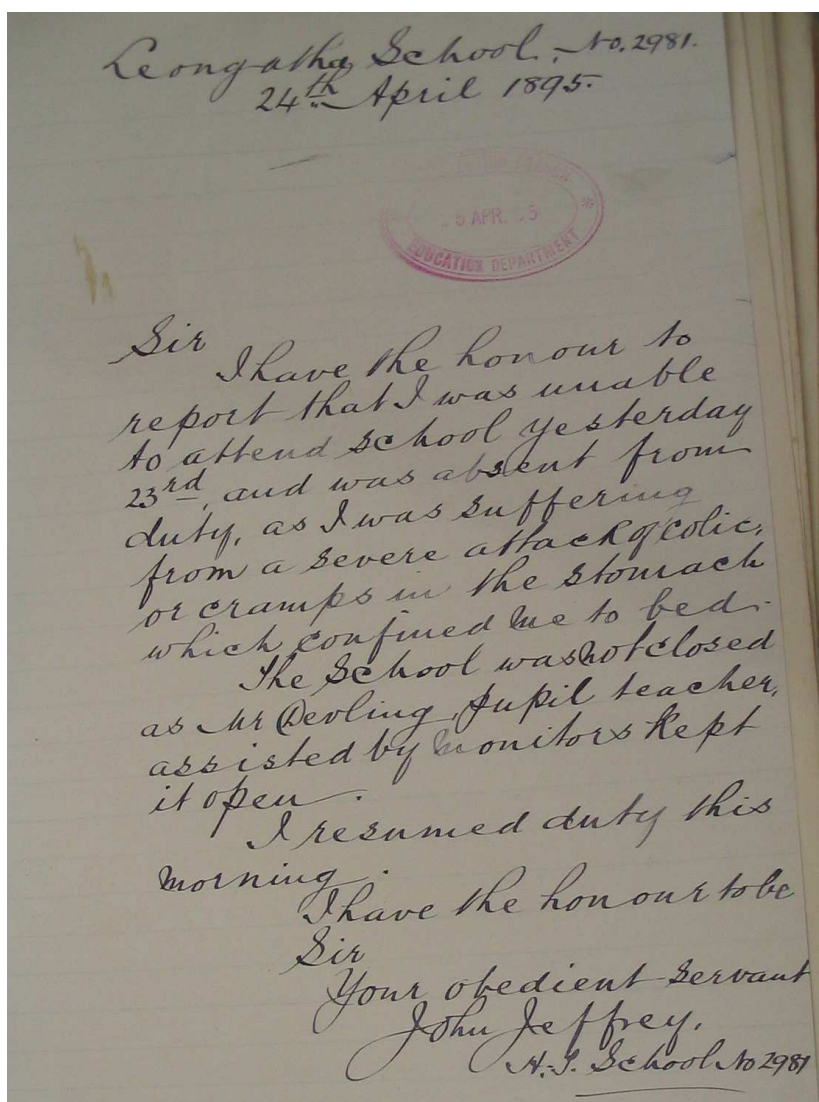 Leongatha School, No. 2981.
24th April 1895.
APR. 5
EDUCATION DEPARTMENT
Sir
I have the honour to
report that I was unable
to attend school yesterday
23rd, and was absent from
duty, as I was suffering
from a severe attack of colic,
or cramps in the stomach
which confined me to bed.
The School was not closed
as Mr Devling, Pupil teacher,
assisted by monitors kept
it open.
I resumed duty this
morning.
I have the honour to be
Sir
Your obedient servant
John Jeffrey.
H.T. School No 2981